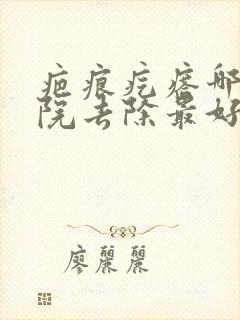 疤痕疙瘩哪
院去除最好
廖麗麗